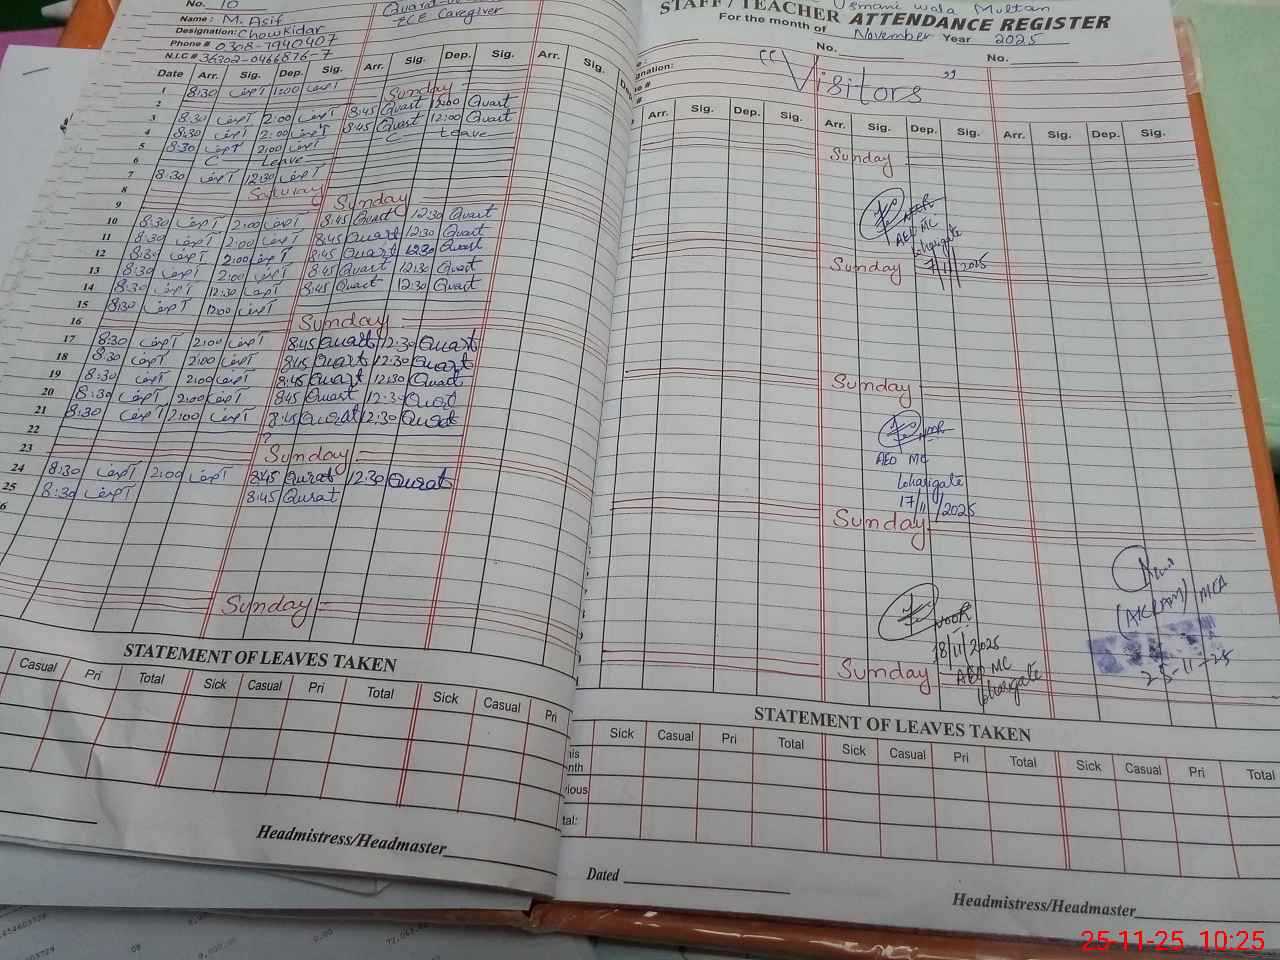 No. 10
Name: M. Asif
Designation: Chowkidar
Phone # 0308-7940407
N.I.C # 36302-0466876-7
ECE Caregiver
Date Arr. Sig. Dep. Sig. Arr. Sig. Dep. Sig. Arr. Sig.
1 8:30 آصف 1:00 آصف
2 Sunday
3 8:30 آصف 2:00 آصف 8:45 Quart 12:00 Quart
4 8:30 آصف 2:00 آصف 8:45 Quart 12:00 Quart
5 8:30 آصف 2:00 آصف C Leave
6 C Leave
7 8:30 آصف 12:30 آصف
8 Saturday
9 Sunday
10 8:30 آصف 2:00 آصف 8:45 Quart 12:30 Quart
11 8:30 آصف 2:00 آصف 8:45 Quart 12:30 Quart
12 8:30 آصف 2:00 آصف 8:45 Quart 12:30 Quart
13 8:30 آصف 2:00 آصف 8:45 Quart 12:30 Quart
14 8:30 آصف 12:30 آصف 8:45 Quart 12:30 Quart
15 8:30 آصف 12:00 آصف
16 Sunday
17 8:30 آصف 2:00 آصف 8:45 Quart 12:30 Quart
18 8:30 آصف 2:00 آصف 8:45 Quart 12:30 Quart
19 8:30 آصف 2:00 آصف 8:45 Quart 12:30 Quart
20 8:30 آصف 2:00 آصف 8:45 Quart 12:30 Quart
21 8:30 آصف 2:00 آصف 8:45 Qurat 12:30 Qurat
22
23 Sunday
24 8:30 آصف 2:00 آصف 8:45 Qurat 12:30 Qurat
25 8:30 آصف 8:45 Qurat
Sunday
STATEMENT OF LEAVES TAKEN
Casual Pri Total Sick Casual Pri Total Sick Casual Pri
Headmistress/Headmaster
Usmani wala Multan
STAFF / TEACHER ATTENDANCE REGISTER
For the month of November Year 2025
No. No.
"Visitors"
Arr. Sig. Dep. Sig. Arr. Sig. Dep. Sig. Arr. Sig. Dep. Sig.
Sunday
NOOR
AEO MC
Loharigate
7/11/2025
Sunday
Sunday
NOOR
AEO MC
Loharigate
17/11/2025
Sunday
NOOR
18/11/2025
AEO MC
Loharigate
Sunday
(AKRAM) MEA
25-11-25
STATEMENT OF LEAVES TAKEN
Sick Casual Pri Total Sick Casual Pri Total Sick Casual Pri Total
Dated
Headmistress/Headmaster
25-11-25 10:25